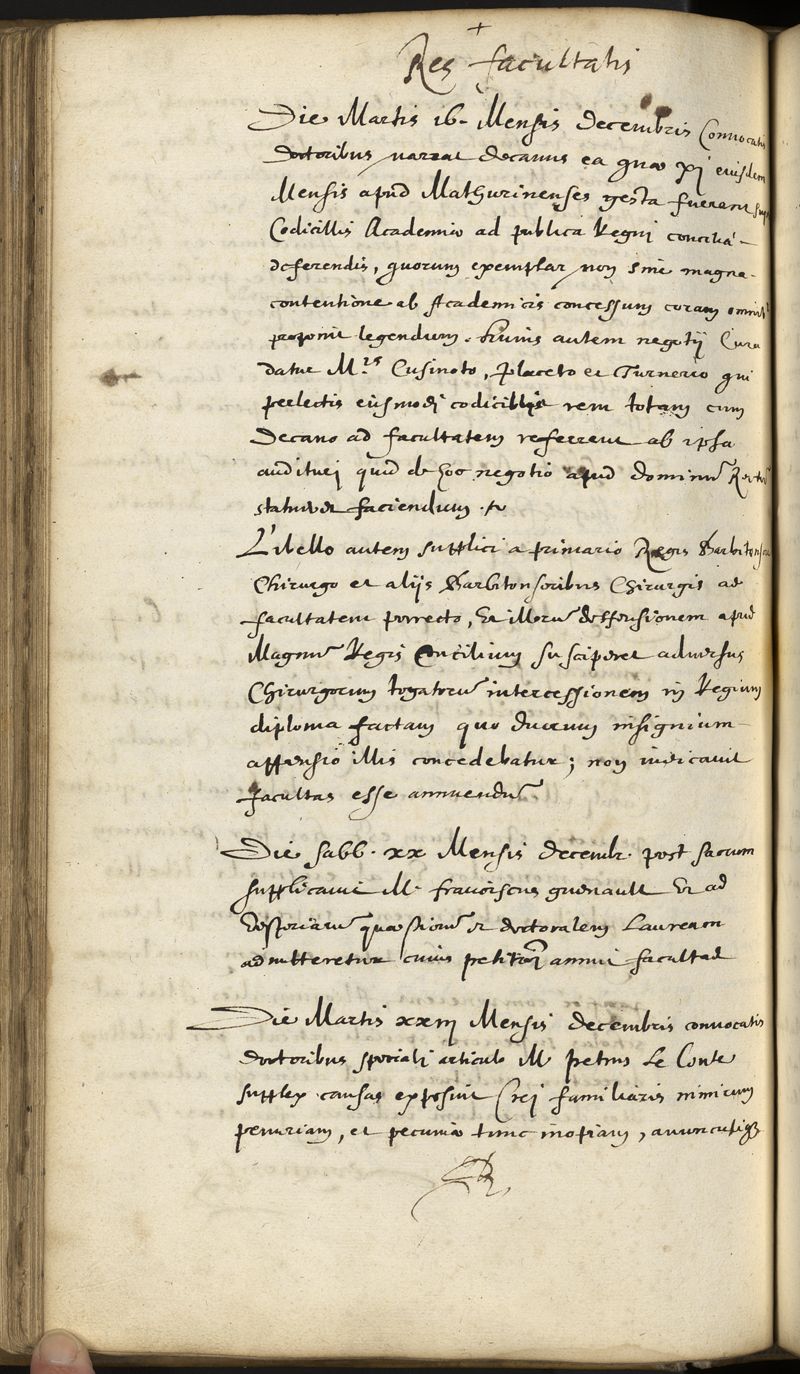 Res facultatis
Die Martis 16. Mensis decembris Convocatis
doctoribus narrat decanus ea quae xj eiusdem
Mensis apud Mathurinenses gesta fuerant sup
Codicillis Academiae ad publica Regni concilia
deferendis, quorum exemplar non sine magna
contentione ab Academicis concessum coram omnib
proponit legendum. huius autem negotij Cura
datur M.ris Cusinoto, placeto et Turnerio qui
perlectis eiusmodi codicillis rem totam cum
Decano ad facultatem referrent ab ipsa
audituri quid de hoc negotio apud dominum Rect
statueret faciendum.
Libello autem supplici a primario Regis Barbitonsore
Chirurgo et aliis Barbitonsoribus Chirurgis ad
facultatem porrecto, Ut illorum deffensionem apud
Magnum Regis Concilium susciperet adversus
Chirurgorum togatorum intercessionem in Regium
diploma factam quo duorum insignium
appensio illis concedebatur; non iudicavit
facultas esse annuendum.
Die sabb. xx Mensis decembr. post sacrum
supplicavit M. franciscus guenault Ut ad
Vesperiarum quaestionem et doctoralem Lauream
admitteretur cuius petitioni annuit facultas
Die Martis xxiij Mensis decembris convocatis
doctoribus speciali articulo M petrus Le Conte
supplex causas exposuit rei familiaris nimirum
penuriam, et pecuniae tunc inopiam, avunculique